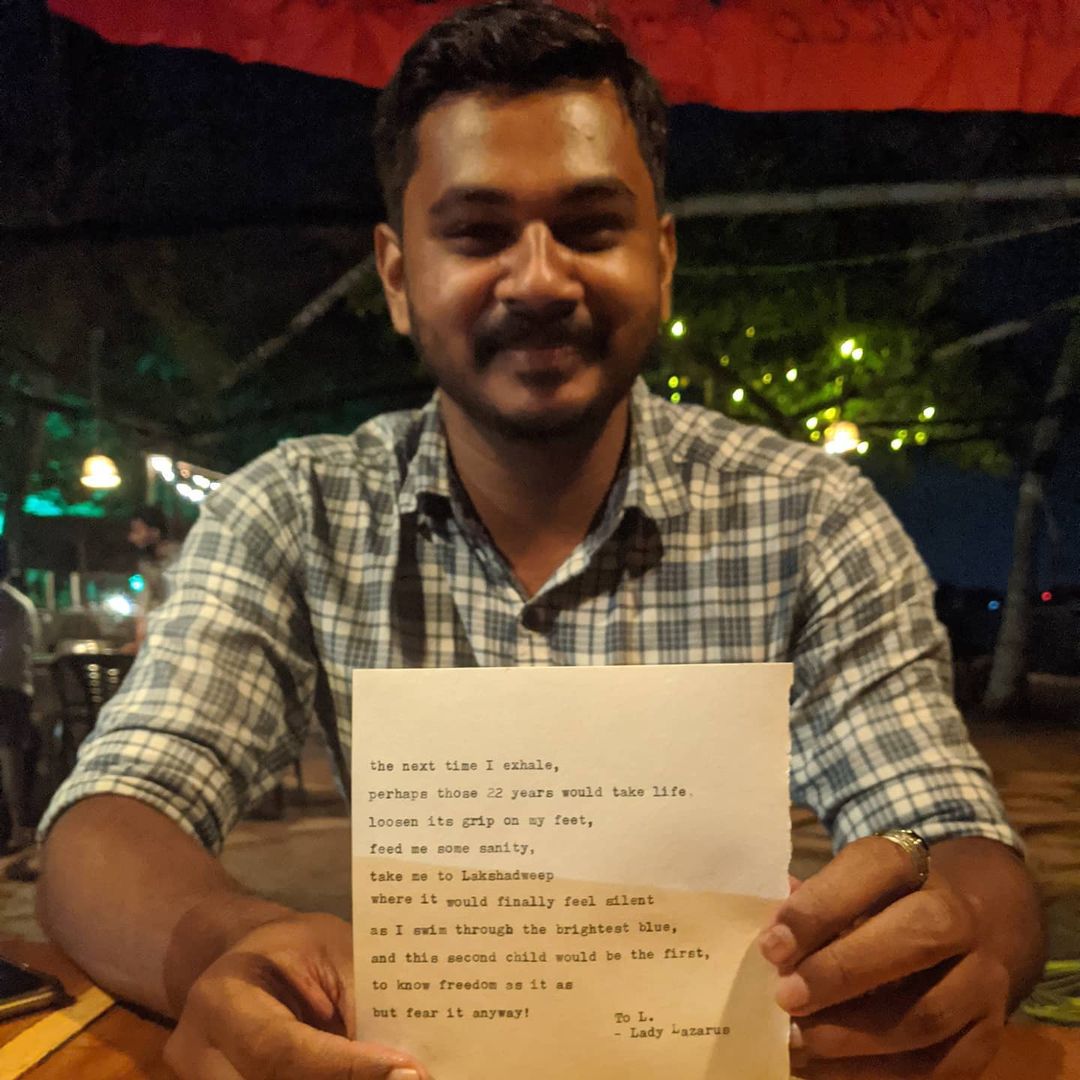 the next time I exhale,
perhaps those 22 years would take life.
loosen its grip on my feet,
feed me some sanity,
take me to Lakshadweep
where it would finally feel silent
as I swim through the brightest blue,
and this second child would be the first,
to know freedom as it as
but fear it anyway!
To L.
- Lady Lazarus